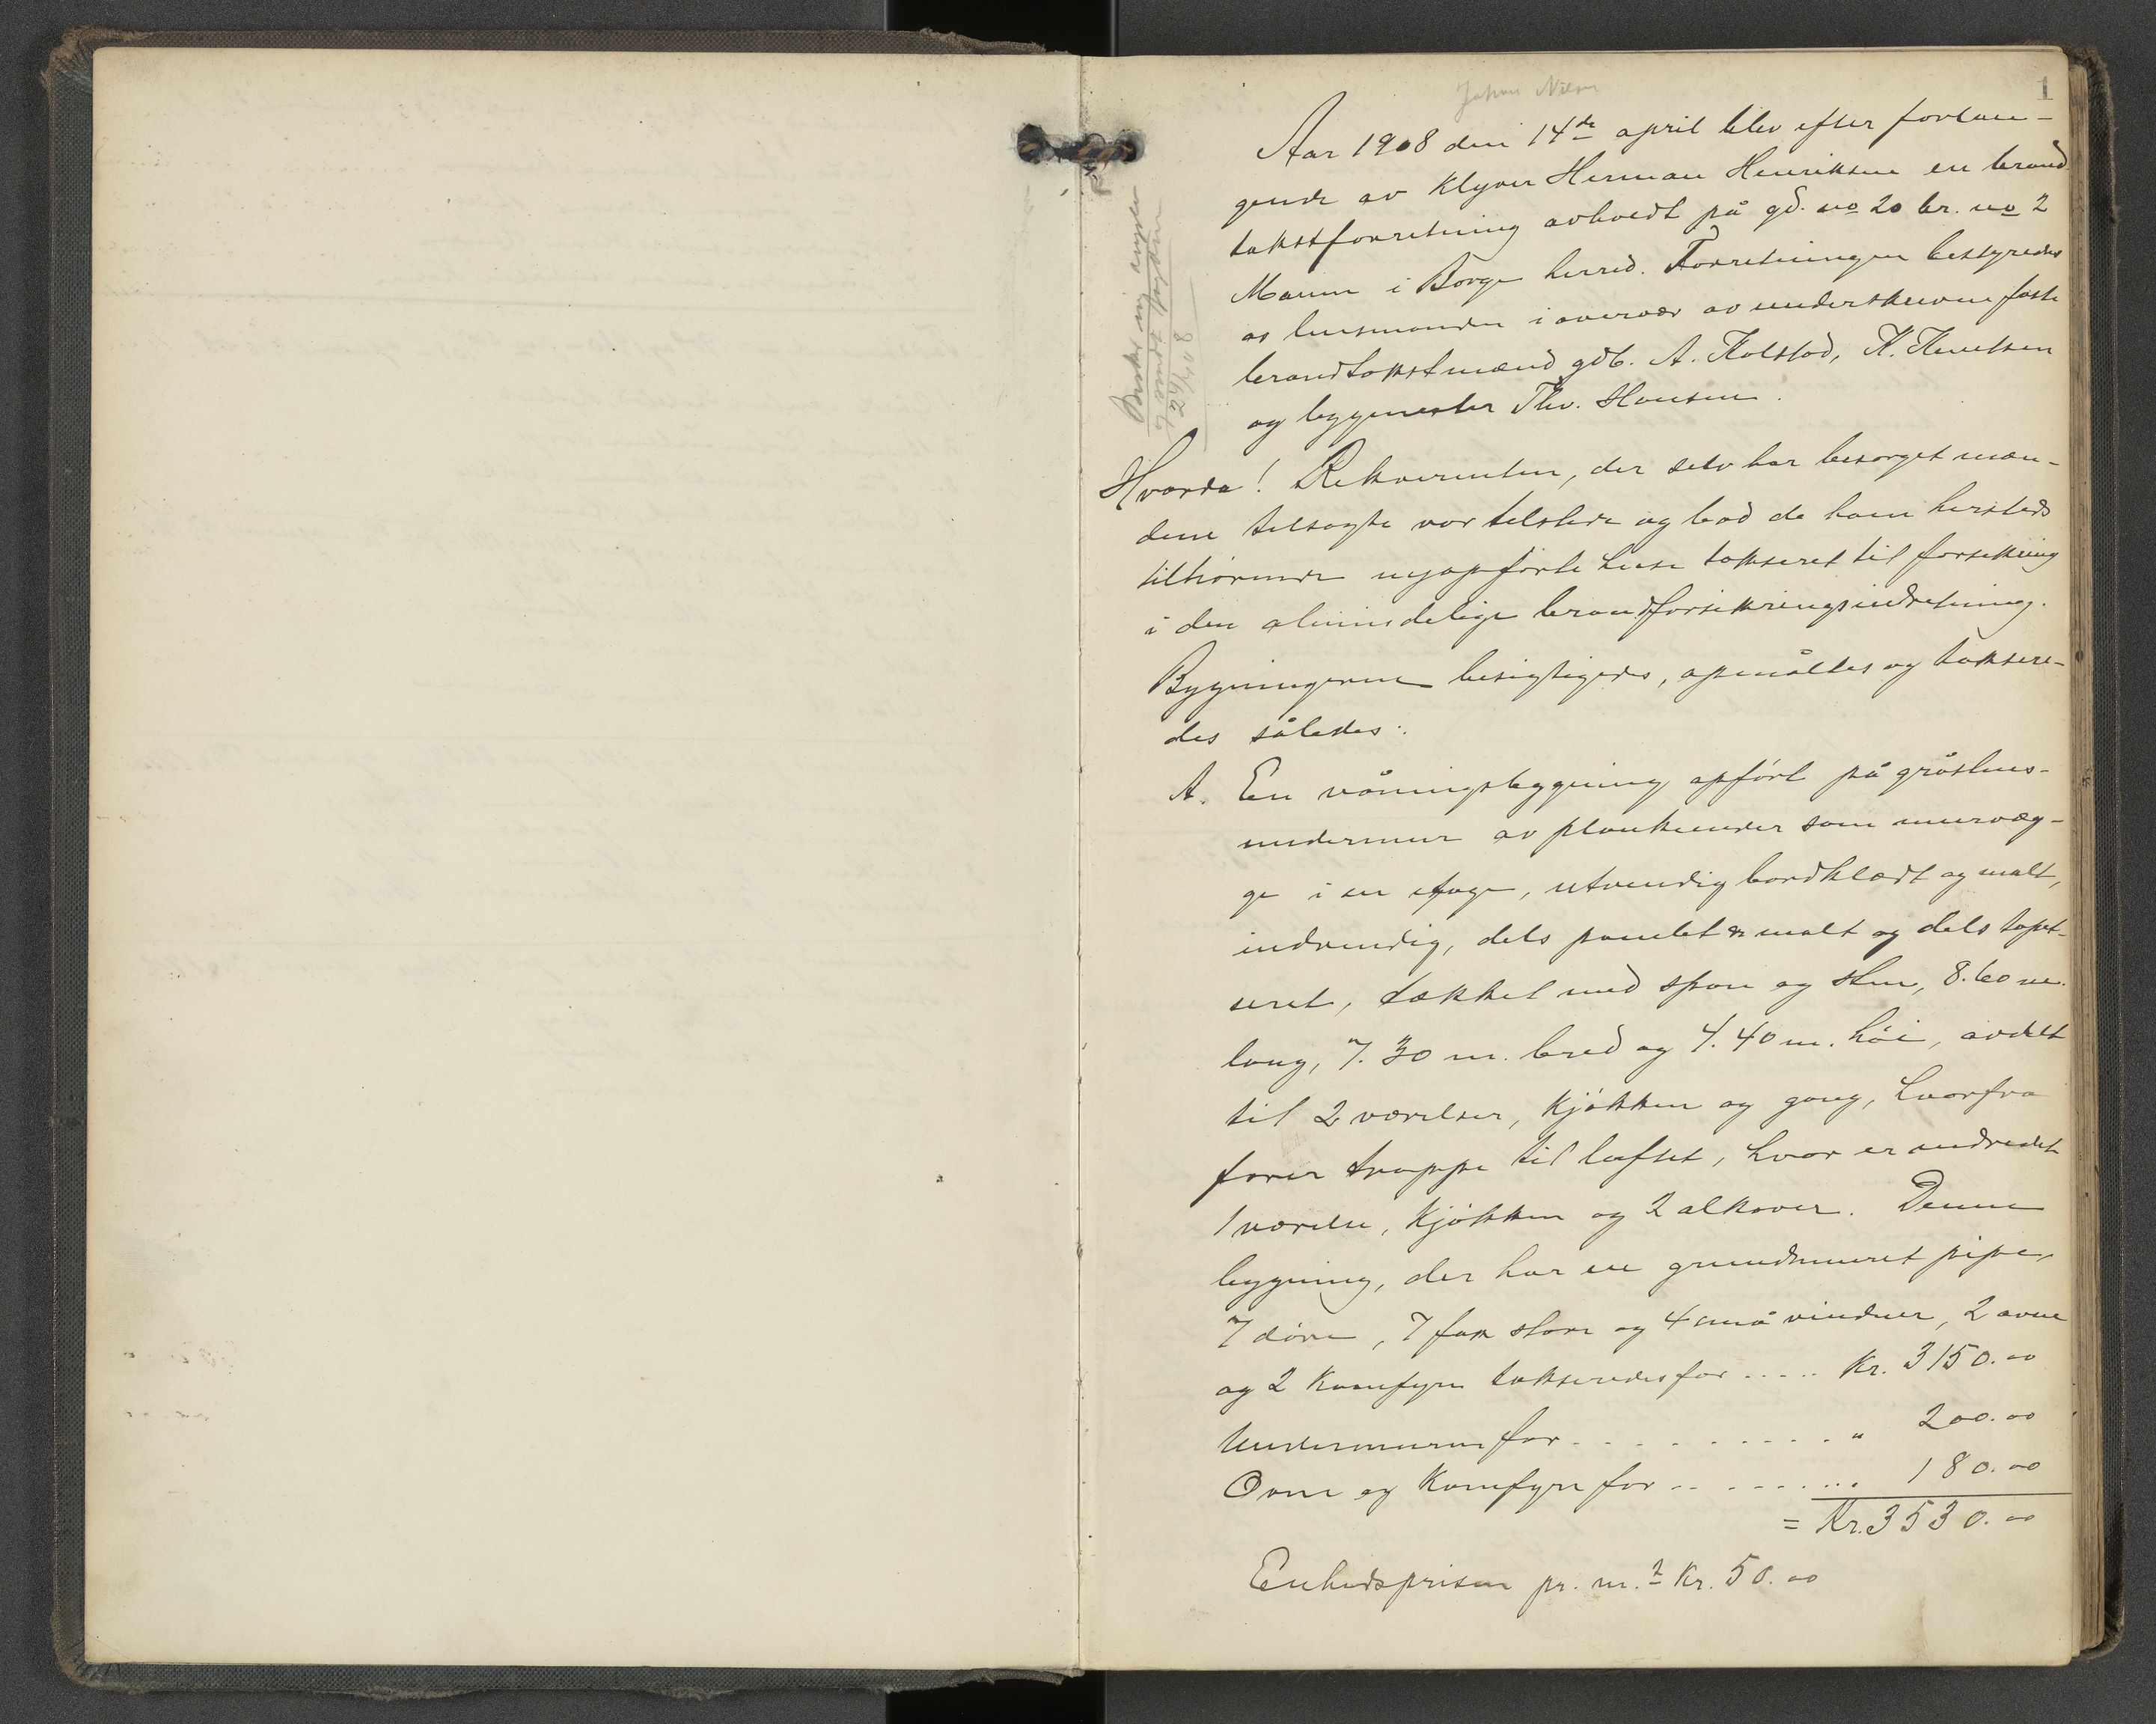 1
Aar 1908 den 14de april blev efter forlan-
gende av Klyver Herman Henriksen en brand
takstforretning avholdt på gd. no 20 br. no 2
Maum i Borge herred. Forretningen bestyredes
av lensmanden i overvær av underskrevne faste
brandtakstmænd gdb. A. Kolstad, K. Knutsen
og bygmester Thv. Hansen.
Hvorda! Rekvirenten, der selv har besørget mæn-
dene tilsagte var tilstede og bad de ham hersteds
tilhørende nyopførte huse takseret til forsikring
i den almindelige brandforsikringsindretning.
Bygningerne besigtigedes, opmåltes og taksere-
des således:
A. En våningsbygning opført på gråstens-
undermur av plankeender som murvæg-
ge i en etage, utvendig bordklædt og malt,
indvendig, dels panelet og malt og dels tapet-
seret, tækket med spon og sten, 8.60 m.
lang, 7.30 m. bred og 4.40 m. høi, avdelt
til 2 værelser, kjøkken og gang, hvorfra
fører trappe til loftet, hvor er indredet
1 værelse, kjøkken og 2 alkover. Denne
bygning, der har en grundmuret pipe,
7 døre, 7 fag store og 4 små vinduer, 2 ovne
og 2 komfyre takseredes for ..... Kr. 3150.00
Undermuren for .......... " 200.00
Ovne og komfyre for ......... 180.00
= Kr. 3530.00
Enhedsprisen pr. m.2 Kr. 50.00